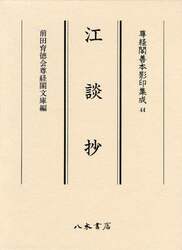 尊経閣善本影印集成 44
江談抄
前田育徳会尊経閣文庫編
八木書店